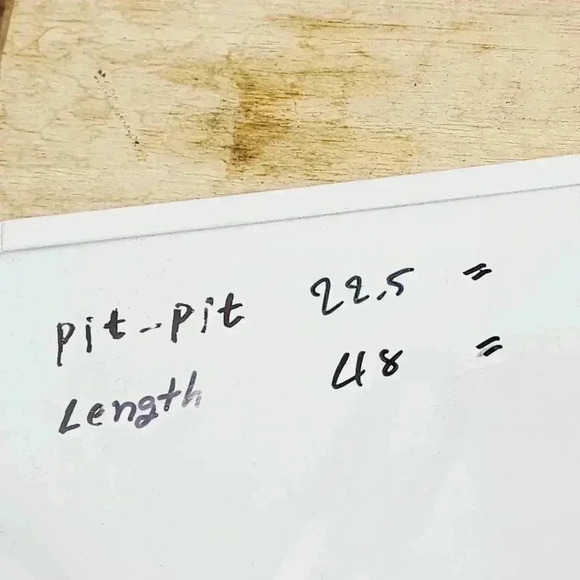 Pit-Pit 22.5 "
Length 48 "